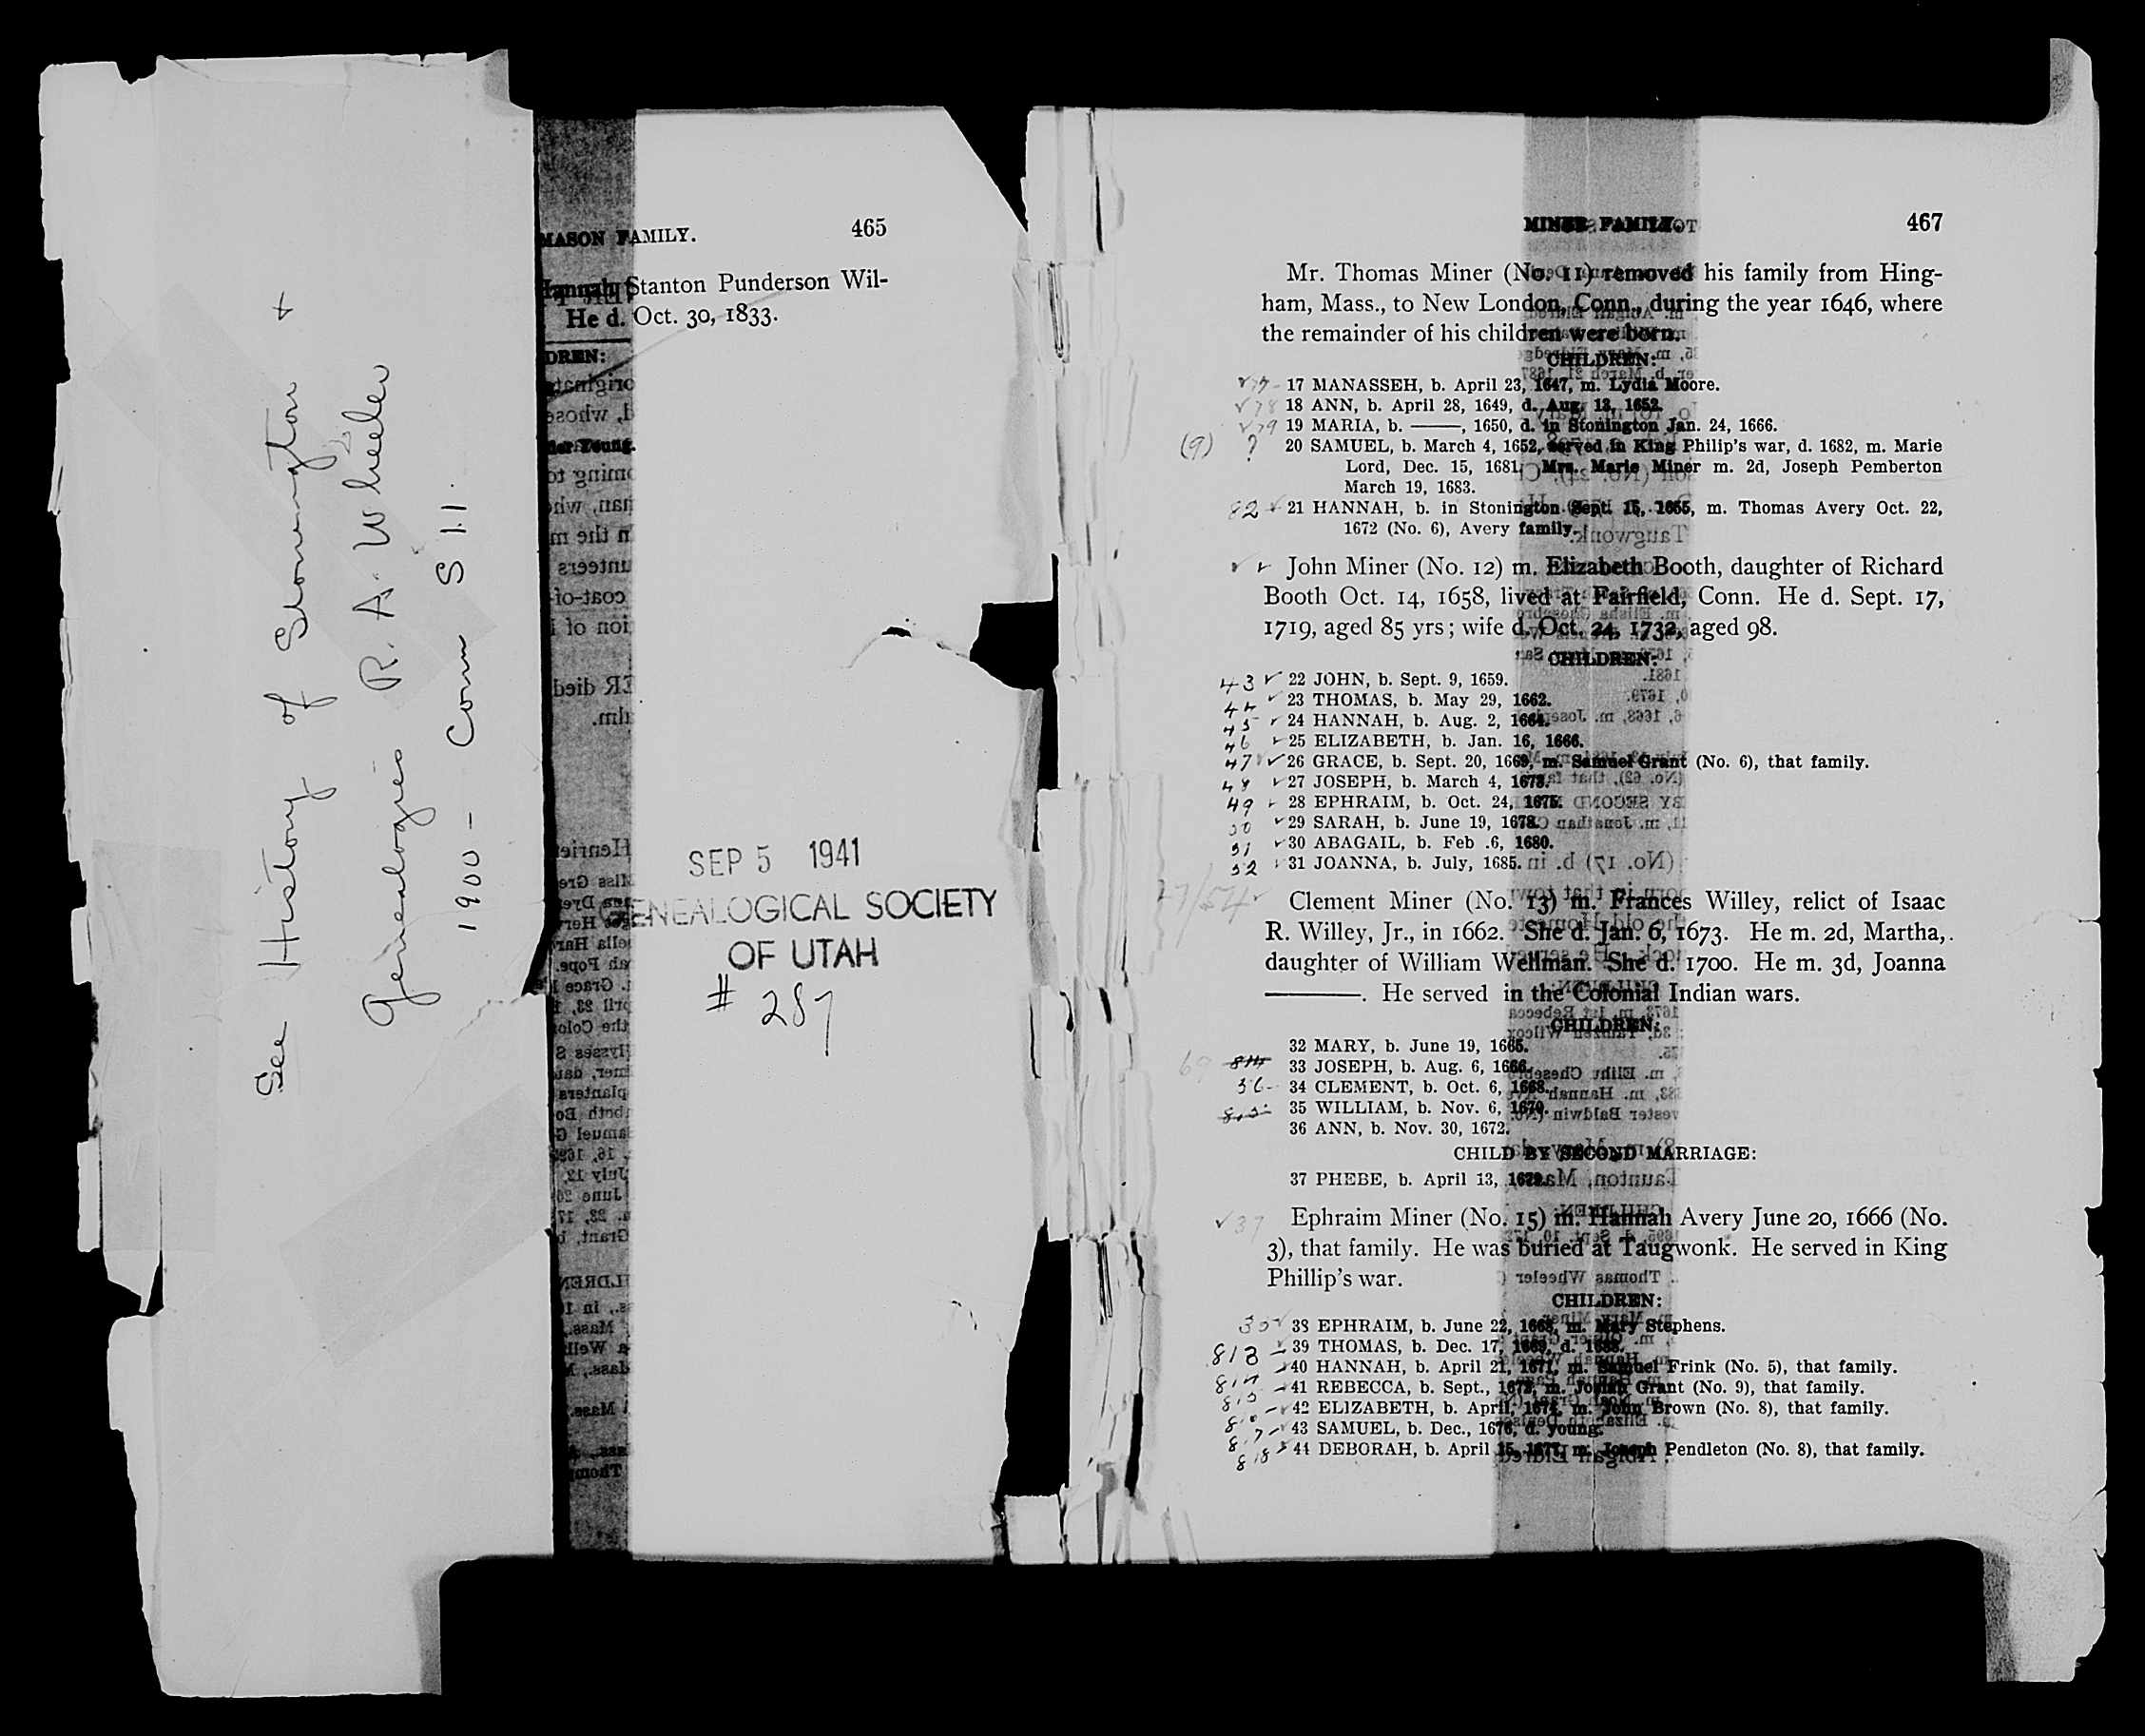 See History of Stonington &
Genealogies R. A. Wheeler
1900 - Conn S 11.
MASON FAMILY. 465
Hannah Stanton Punderson Wil-
He d. Oct. 30, 1833.
DREN:
SEP 5 1941
GENEALOGICAL SOCIETY
OF UTAH
# 287
MINER FAMILY. 467
Mr. Thomas Miner (No. 11) removed his family from Hing-
ham, Mass., to New London, Conn., during the year 1646, where
the remainder of his children were born.
CHILDREN:
17 MANASSEH, b. April 23, 1647, m. Lydia Moore.
18 ANN, b. April 28, 1649, d. Aug. 13, 1652.
19 MARIA, b. ———, 1650, d. in Stonington Jan. 24, 1666.
(9) ? 20 SAMUEL, b. March 4, 1652, served in King Philip's war, d. 1682, m. Marie
Lord, Dec. 15, 1681. Mrs. Marie Miner m. 2d, Joseph Pemberton
March 19, 1683.
82 ✓ 21 HANNAH, b. in Stonington Sept. 15, 1655, m. Thomas Avery Oct. 22,
1672 (No. 6), Avery family.
John Miner (No. 12) m. Elizabeth Booth, daughter of Richard
Booth Oct. 14, 1658, lived at Fairfield, Conn. He d. Sept. 17,
1719, aged 85 yrs; wife d. Oct. 24, 1732, aged 98.
CHILDREN:
43 ✓ 22 JOHN, b. Sept. 9, 1659.
44 ✓ 23 THOMAS, b. May 29, 1662.
45 ✓ 24 HANNAH, b. Aug. 2, 1664.
46 ✓ 25 ELIZABETH, b. Jan. 16, 1666.
47 ✓ 26 GRACE, b. Sept. 20, 1669, m. Samuel Grant (No. 6), that family.
48 ✓ 27 JOSEPH, b. March 4, 1673.
49 ✓ 28 EPHRAIM, b. Oct. 24, 1675.
50 ✓ 29 SARAH, b. June 19, 1678.
51 ✓ 30 ABAGAIL, b. Feb .6, 1680.
52 ✓ 31 JOANNA, b. July, 1685.
Clement Miner (No. 13) m. Frances Willey, relict of Isaac
R. Willey, Jr., in 1662. She d. Jan. 6, 1673. He m. 2d, Martha,
daughter of William Wellman. She d. 1700. He m. 3d, Joanna
———. He served in the Colonial Indian wars.
CHILDREN:
32 MARY, b. June 19, 1665.
33 JOSEPH, b. Aug. 6, 1666.
36- 34 CLEMENT, b. Oct. 6, 1668.
35 WILLIAM, b. Nov. 6, 1670.
36 ANN, b. Nov. 30, 1672.
CHILD BY SECOND MARRIAGE:
37 PHEBE, b. April 13, 1679.
✓ 37 Ephraim Miner (No. 15) m. Hannah Avery June 20, 1666 (No.
3), that family. He was buried at Taugwonk. He served in King
Phillip's war.
CHILDREN:
38 EPHRAIM, b. June 22, 1668, m. Mary Stephens.
813 39 THOMAS, b. Dec. 17, 1669, d. 1688.
814 40 HANNAH, b. April 21, 1671, m. Samuel Frink (No. 5), that family.
815 41 REBECCA, b. Sept., 1672, m. Josiah Grant (No. 9), that family.
42 ELIZABETH, b. April, 1674, m. John Brown (No. 8), that family.
817 43 SAMUEL, b. Dec., 1676, d. young.
818 44 DEBORAH, b. April 15, 1677, m. Joseph Pendleton (No. 8), that family.